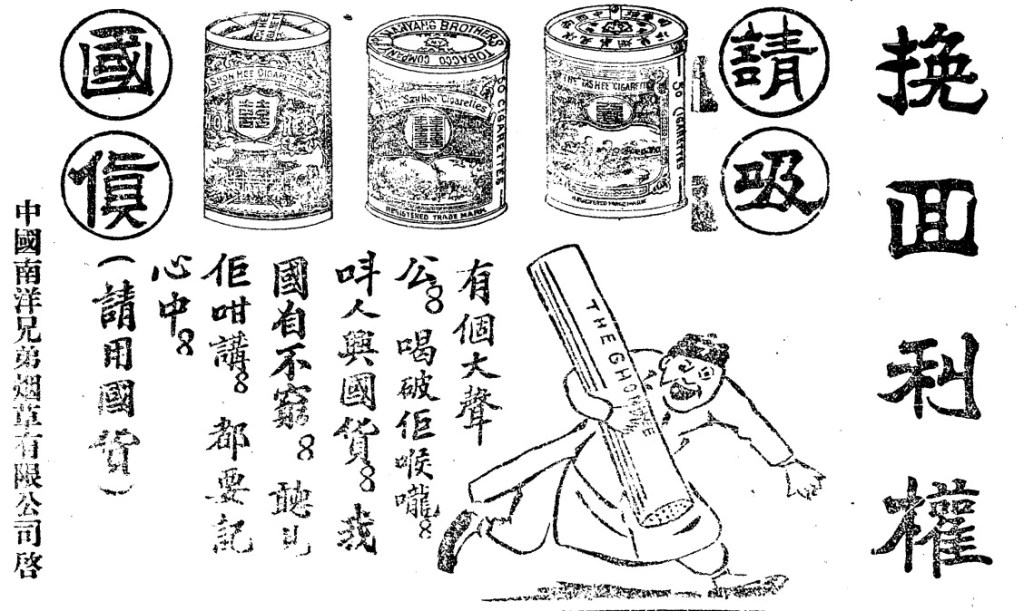 挽囬利權
請吸
國貨
50 CIGARETTES
REGISTERED TRADE MARK
NANYANG BROTHERS TOBACCO COMPANY
50 CIGARETTES
REGISTERED TRADE MARK
HEE CIGARETTES
THE
有個大聲
公。喝破佢喉嚨。
呌人興國貨。我
國自不窮。聽見
佢咁講。都要記
心中。
(請用國貨)
中國南洋兄弟烟草有限公司啓